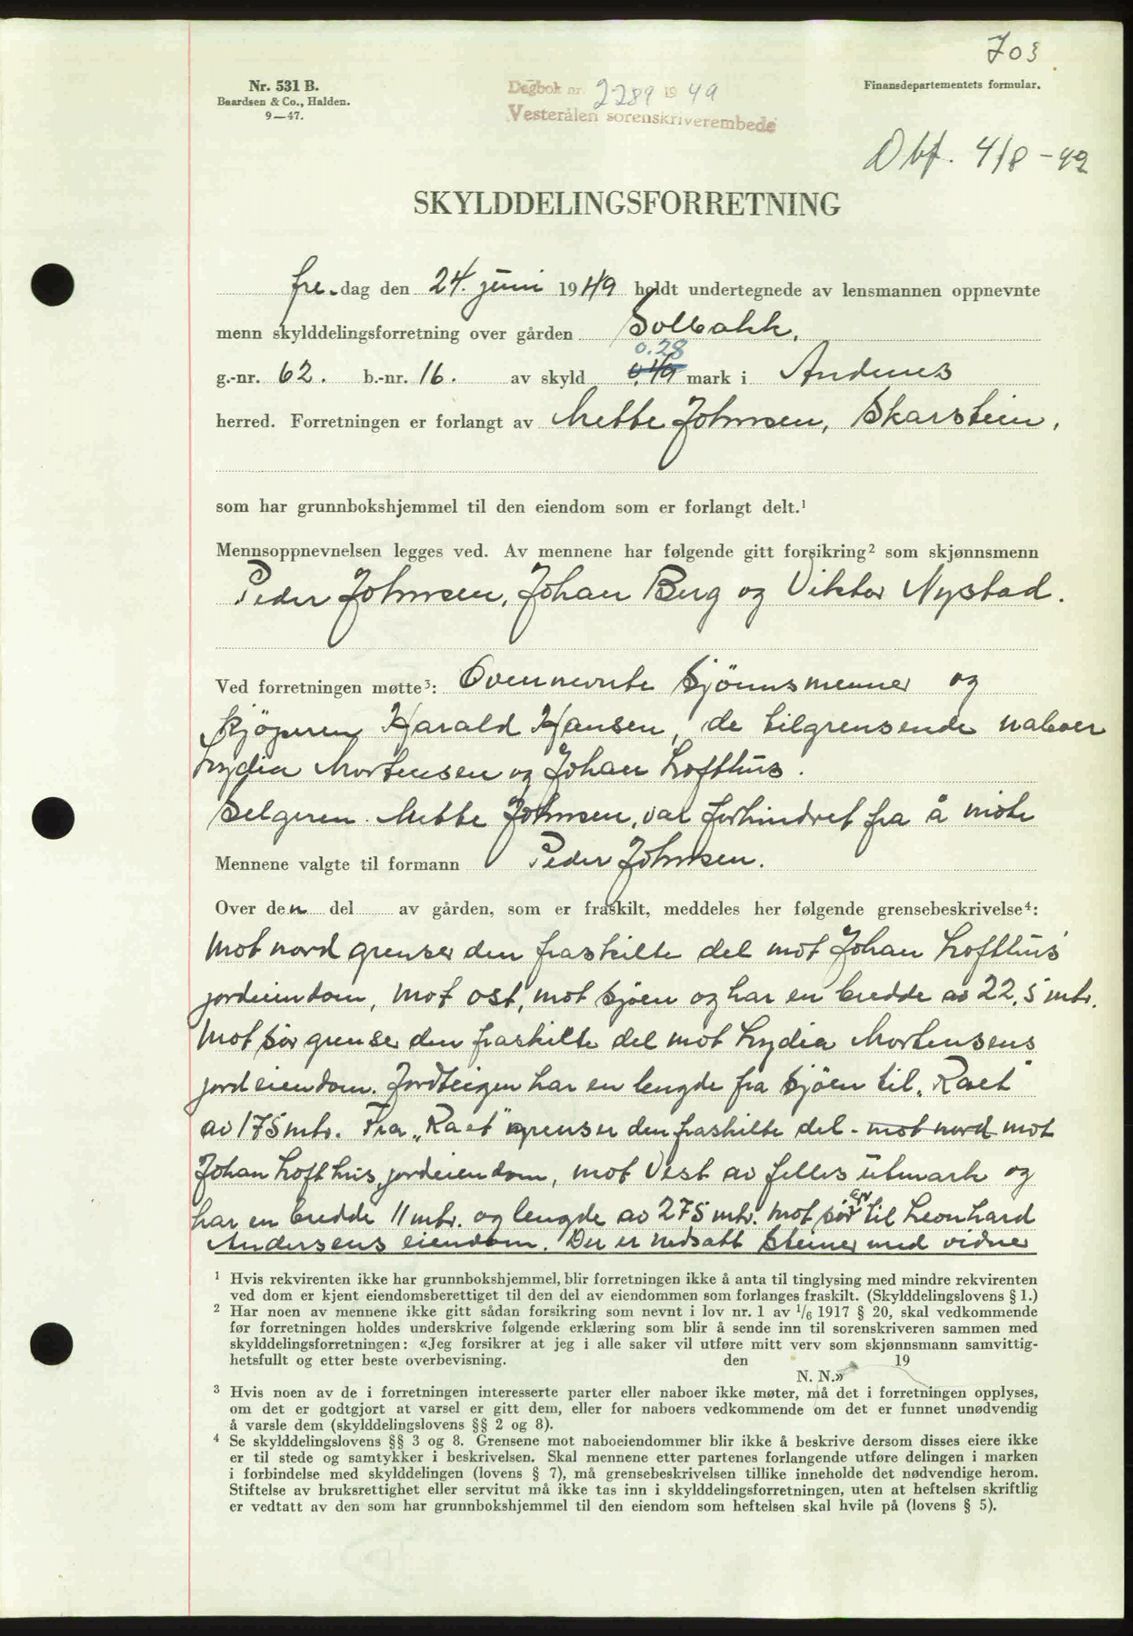 703
Nr. 531 B.
Baardsen & Co., Halden.
9—47.
Dagbok nr. 2289 1949
Vesterålen sorenskriverembede
Finansdepartementets formular.
Dbf. 4/8-49
SKYLDDELINGSFORRETNING
fre-dag den 24. juni 1949 holdt undertegnede av lensmannen oppnevnte
menn skylddelingsforretning over gården Solbakk,
0.28
g.-nr. 62. b.-nr. 16. av skyld 0,49 mark i Andenes
herred. Forretningen er forlangt av Mette Johnsen, Skarstein,
som har grunnbokshjemmel til den eiendom som er forlangt delt.¹
Mennsoppnevnelsen legges ved. Av mennene har følgende gitt forsikring² som skjønnsmenn
Peder Johnsen, Johan Berg og Viktor Nystad.
Ved forretningen møtte³: Ovennevnte sjönnsmenner og
kjöperen Harald Hansen, de tilgrensende naboer
Lydia Mortensen og Johan Lofthus.
Selgeren. Mette Johnsen, var forhindret fra å möte
Mennene valgte til formann Peder Johnsen.
Over den del av gården, som er fraskilt, meddeles her følgende grensebeskrivelse⁴:
Mot nord grenser den fraskilte del mot Johan Lofthus
jordeiendom, mot ost, mot sjöen og har en bredde av 22,5 mtr.
Mot sör grenser den fraskilte del mot Lydia Mortensens
jordeiendom. Jordteigen har en lengde fra sjöen til „Raet"
av 175 mtr. Fra „Raet" grenser den fraskilte del - mot nord mot
Johan Lofthus, jordeiendom, mot Vest av felles utmark og
har en bredde 11 mtr. og lengde av 275 mtr. Mot sör til Leonhard
Andersens eiendom. Der er nedsatt steiner med vidner
¹ Hvis rekvirenten ikke har grunnbokshjemmel, blir forretningen ikke å anta til tinglysing med mindre rekvirenten
ved dom er kjent eiendomsberettiget til den del av eiendommen som forlanges fraskilt. (Skylddelingslovens § 1.)
² Har noen av mennene ikke gitt sådan forsikring som nevnt i lov nr. 1 av 1/6 1917 § 20, skal vedkommende
før forretningen holdes underskrive følgende erklæring som blir å sende inn til sorenskriveren sammen med
skylddelingsforretningen: «Jeg forsikrer at jeg i alle saker vil utføre mitt verv som skjønnsmann samvittig-
hetsfullt og etter beste overbevisning. den 19
N. N.»
³ Hvis noen av de i forretningen interesserte parter eller naboer ikke møter, må det i forretningen opplyses,
om det er godtgjort at varsel er gitt dem, eller for naboers vedkommende om det er funnet unødvendig
å varsle dem (skylddelingslovens §§ 2 og 8).
⁴ Se skylddelingslovens §§ 3 og 8. Grensene mot naboeiendommer blir ikke å beskrive dersom disses eiere ikke
er til stede og samtykker i beskrivelsen. Skal mennene etter partenes forlangende utføre delingen i marken
i forbindelse med skylddelingen (lovens § 7), må grensebeskrivelsen tillike inneholde det nødvendige herom.
Stiftelse av bruksrettighet eller servitut må ikke tas inn i skylddelingsforretningen, uten at heftelsen skriftlig
er vedtatt av den som har grunnbokshjemmel til den eiendom som heftelsen skal hvile på (lovens § 5).